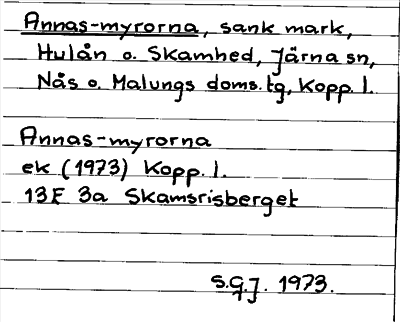 Annas-myrorna, sank mark,
Hulån o. Skamhed, Järna sn,
Nås o. Malungs doms.tg, Kopp. l.
Annas-myrorna
ek (1973) Kopp. l.
13E 3a Skamsrisberget
S.G.J. 1973.